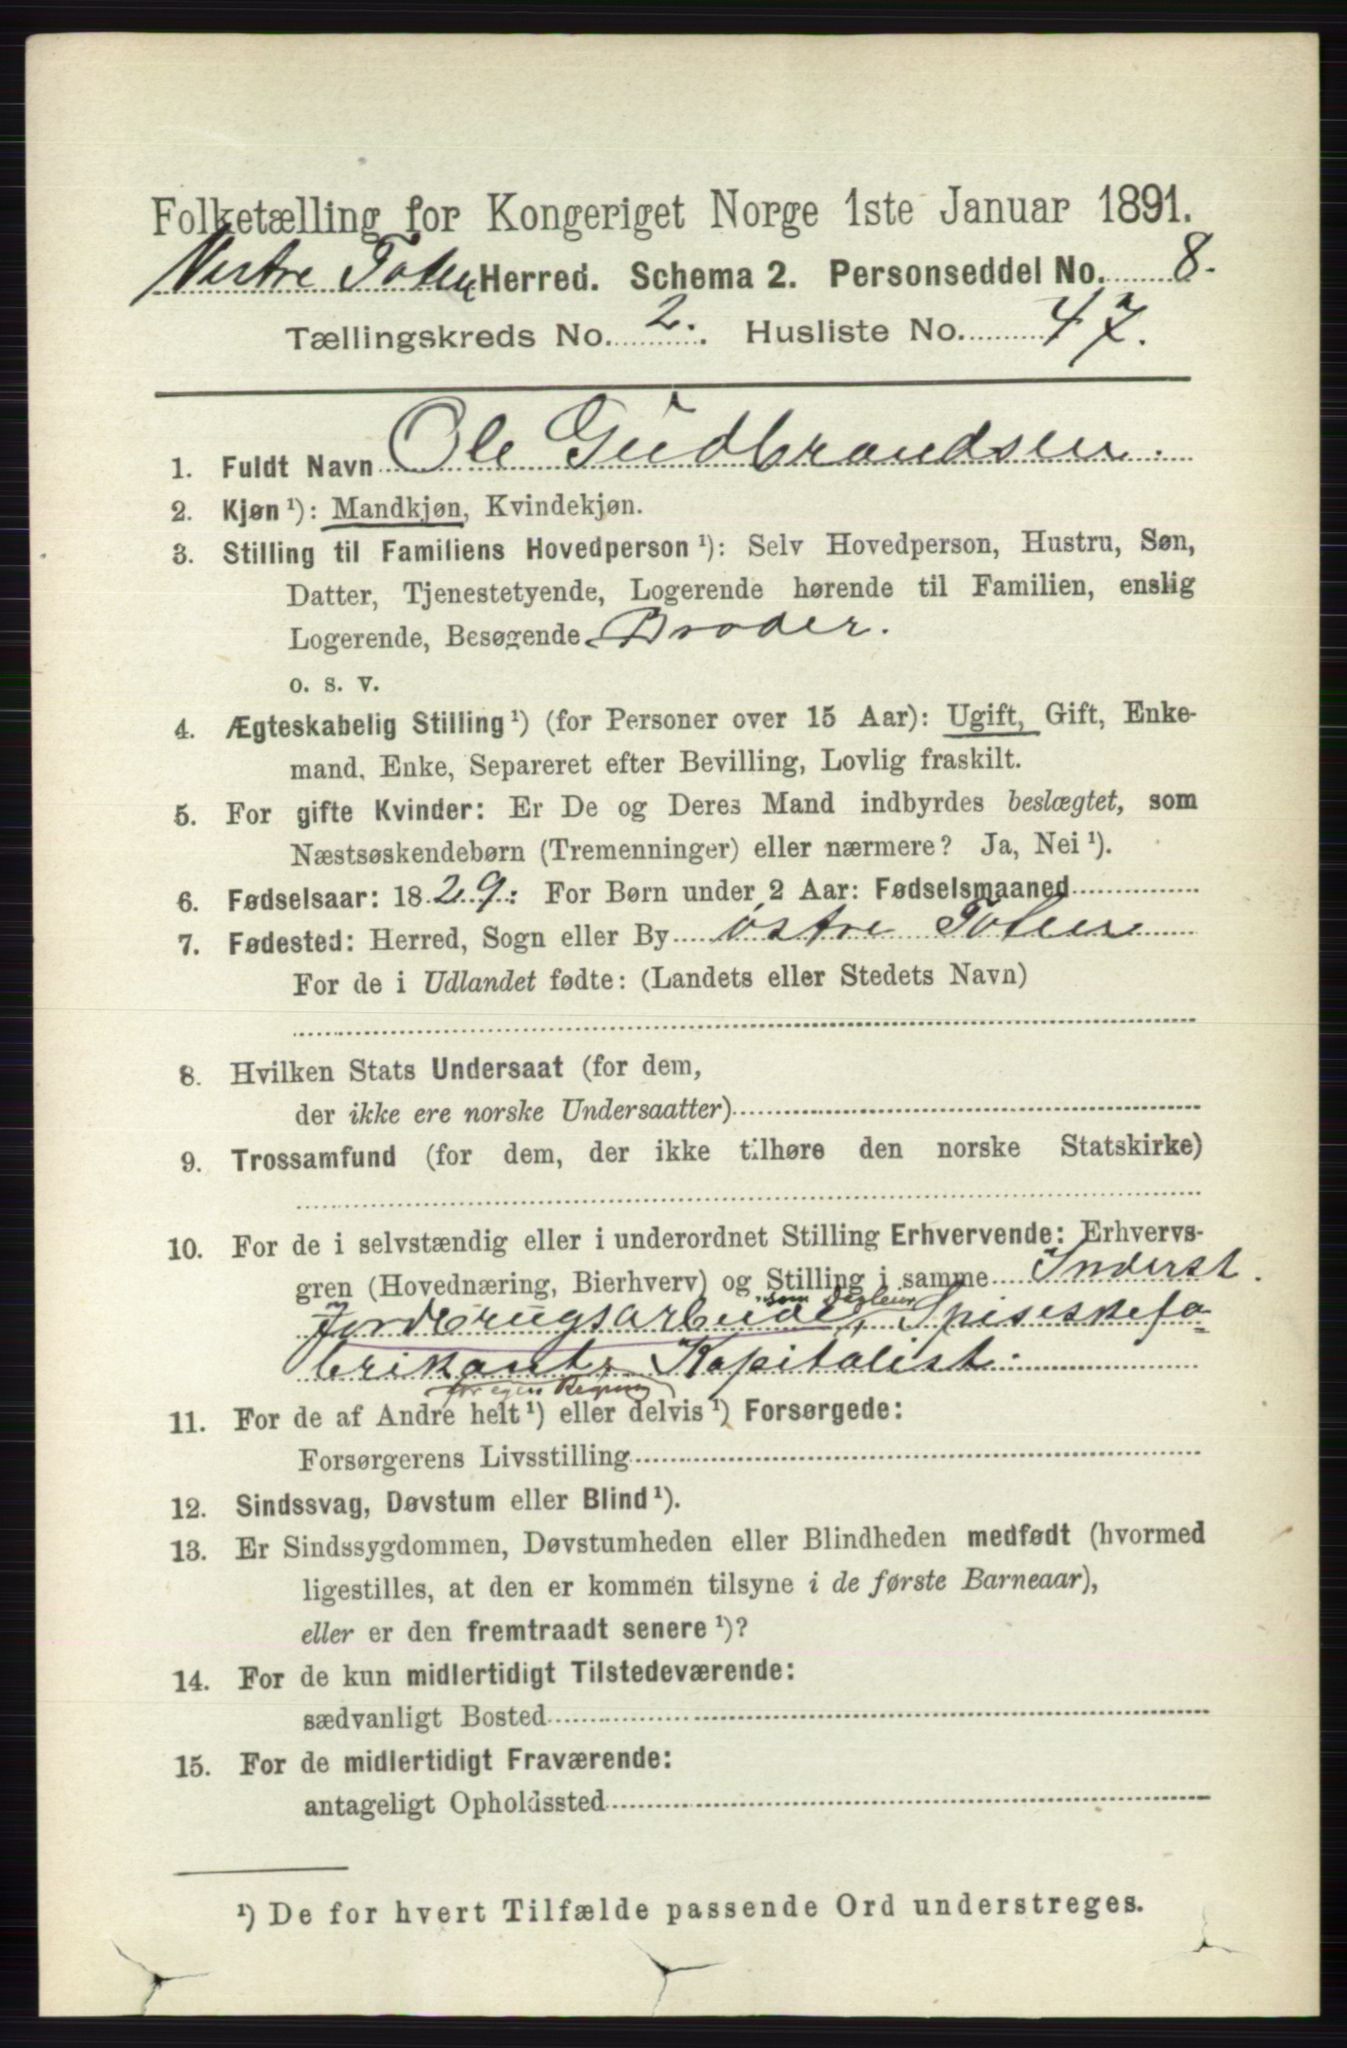 Folketælling for Kongeriget Norge 1ste Januar 1891.
Vestre Toten Herred. Schema 2. Personseddel No. 8.
Tællingskreds No. 2. Husliste No. 47.
1. Fuldt Navn Ole Gudbrandsen.
2. Kjøn ¹): Mandkjøn, Kvindekjøn.
3. Stilling til Familiens Hovedperson ¹): Selv Hovedperson, Hustru, Søn,
Datter, Tjenestetyende, Logerende hørende til Familien, enslig
Logerende, Besøgende Broder.
o. s. v.
4. Ægteskabelig Stilling ¹) (for Personer over 15 Aar): Ugift, Gift, Enke-
mand, Enke, Separeret efter Bevilling, Lovlig fraskilt.
5. For gifte Kvinder: Er De og Deres Mand indbyrdes beslægtet, som
Næstsøskendebørn (Tremenninger) eller nærmere? Ja, Nei ¹).
6. Fødselsaar: 1829. For Børn under 2 Aar: Fødselsmaaned
7. Fødested: Herred, Sogn eller By østre Toten
For de i Udlandet fødte: (Landets eller Stedets Navn)
8. Hvilken Stats Undersaat (for dem,
der ikke ere norske Undersaatter)
9. Trossamfund (for dem, der ikke tilhøre den norske Statskirke)
10. For de i selvstændig eller i underordnet Stilling Erhvervende: Erhvervs-
gren (Hovednæring, Bierhverv) og Stilling i samme Inderst.
som
Jordbrugsarbeide, Spiseskefa-
brikant, Kapitalist.
for egen Regning
11. For de af Andre helt ¹) eller delvis ¹) Forsørgede:
Forsørgerens Livsstilling
12. Sindssvag, Døvstum eller Blind ¹).
13. Er Sindssygdommen, Døvstumheden eller Blindheden medfødt (hvormed
ligestilles, at den er kommen tilsyne i de første Barneaar),
eller er den fremtraadt senere ¹)?
14. For de kun midlertidigt Tilstedeværende:
sædvanligt Bosted
15. For de midlertidigt Fraværende:
antageligt Opholdssted
¹) De for hvert Tilfælde passende Ord understreges.